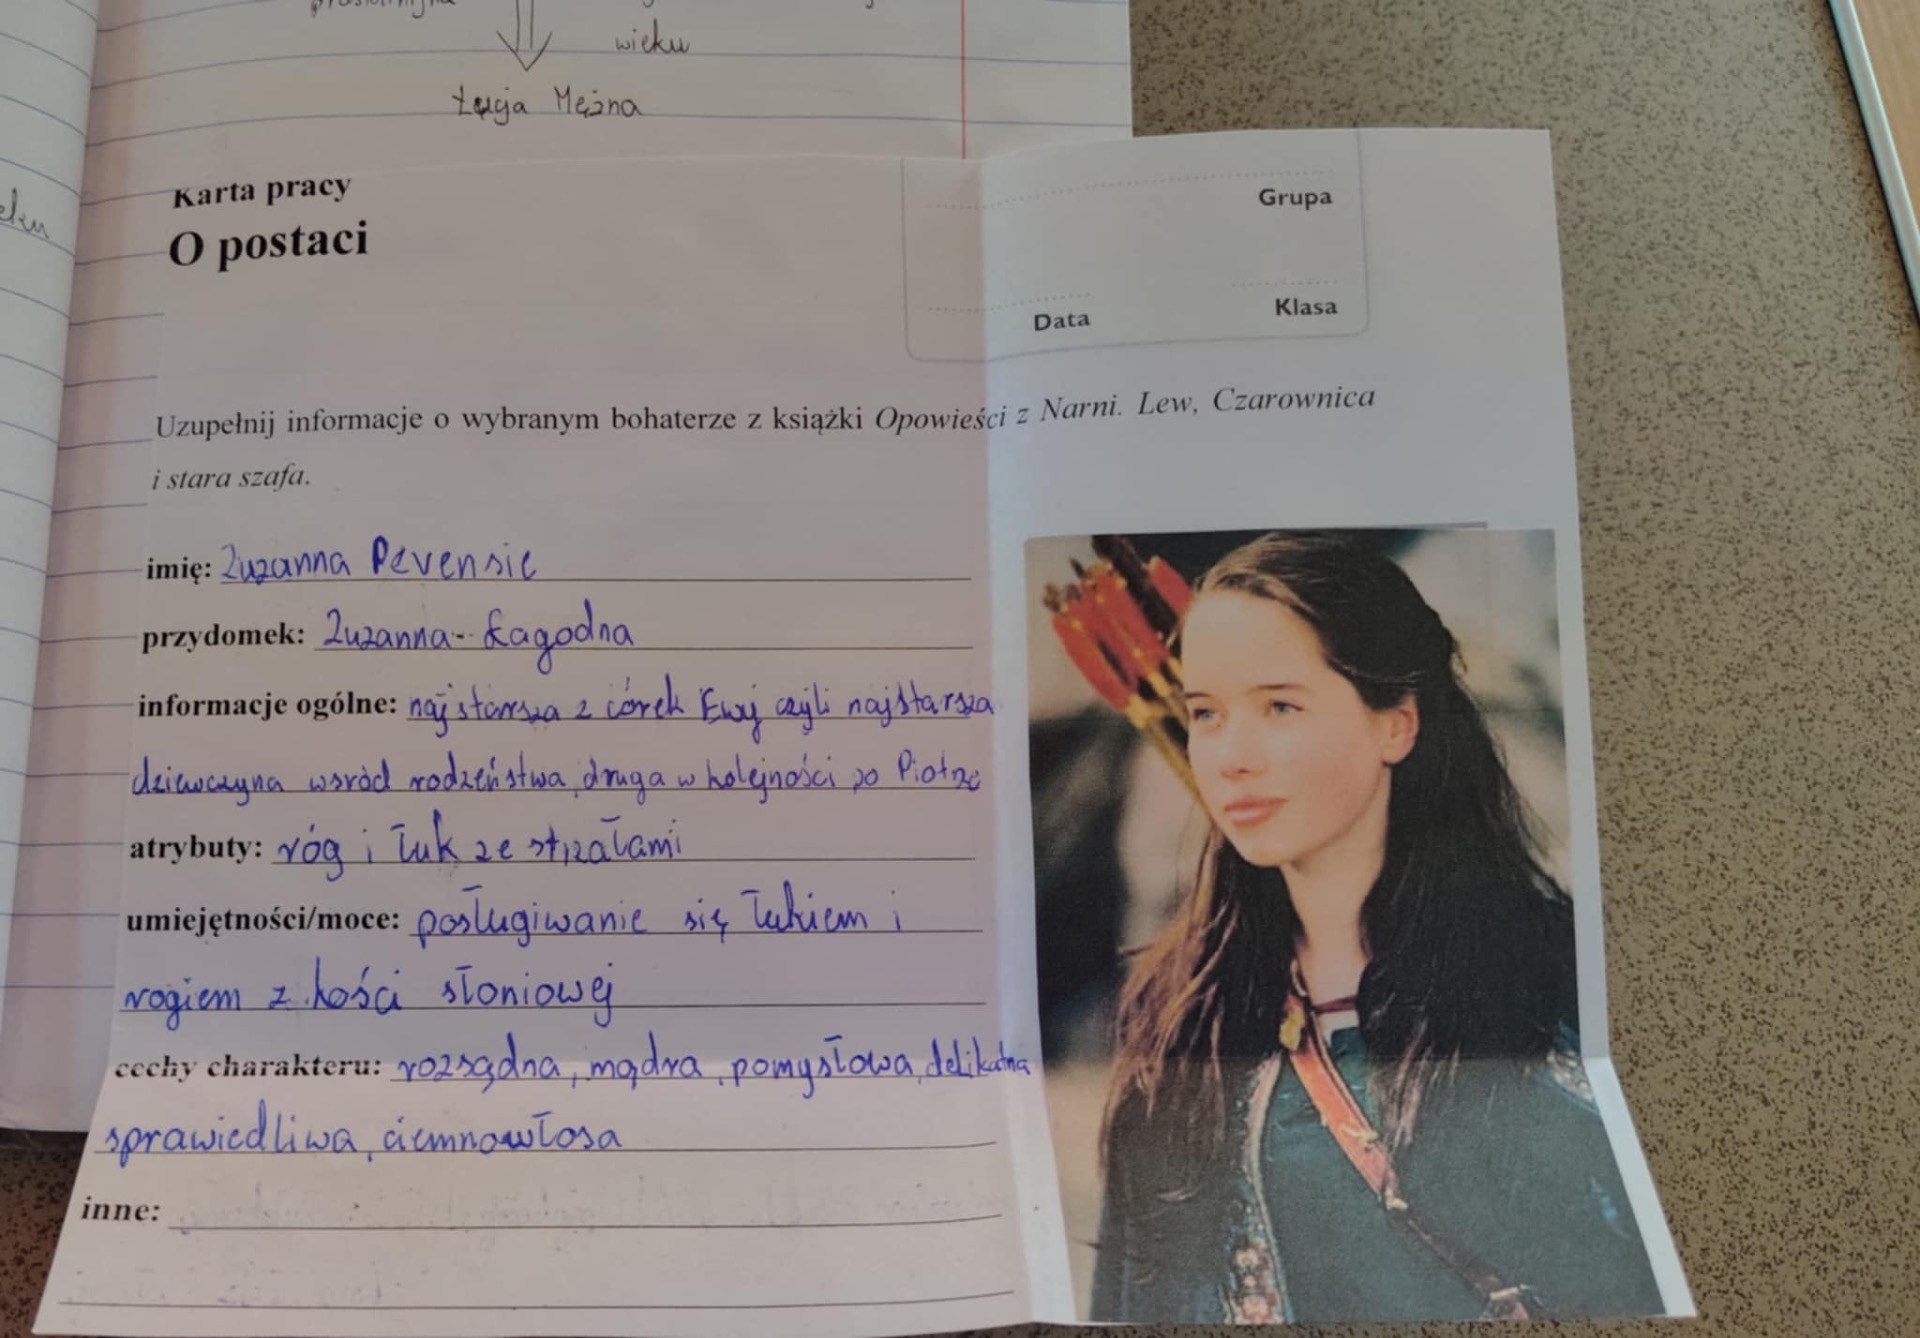 wieku
Łucja Mężna
Karta pracy
O postaci
Grupa
Data
Klasa
Uzupełnij informacje o wybranym bohaterze z książki Opowieści z Narni. Lew, Czarownica
i stara szafa.
imię: Zuzanna Pevensie
przydomek: Zuzanna-Łagodna
informacje ogólne: najstarsza z córek Ewy czyli najstarsza
dziewczyna wsród rodzeństwa, druga w kolejności po Piotrze
atrybuty: róg i łuk ze strzałami
umiejętności/moce: posługiwanie się łukiem i
rogiem z kości słoniowej
cechy charakteru: rozsądna, mądra, pomysłowa, delikatna
sprawiedliwa, ciemnowłosa
inne: